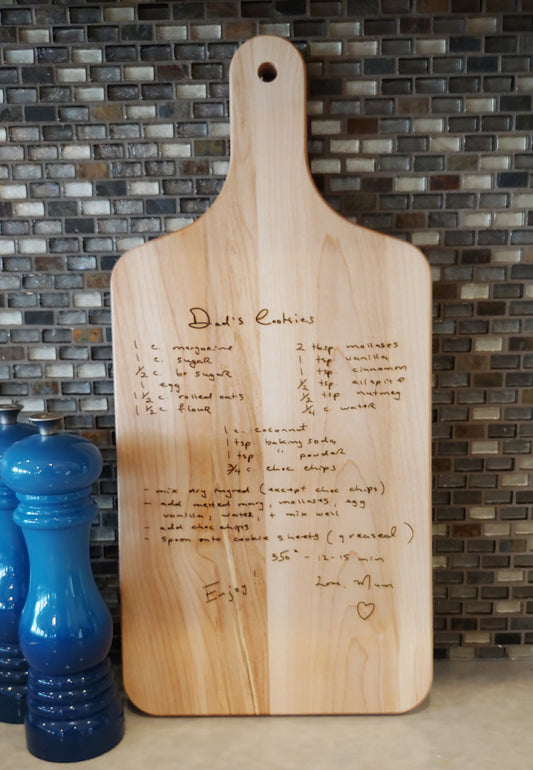 Dad's Cookies
1 c. margarine
1 c. sugar
1/2 c. br sugar
1 egg
1 1/2 c. rolled oats
1 1/2 c flour
2 tbsp. mollases
1 tsp. vanilla
1 tsp. cinnamon
1/2 tsp. allspice
1/2 tsp. nutmeg
1/4 c. water
1 c. coconut
1 tsp baking soda
1 tsp " powder
3/4 c. choc chips
- mix dry ingred (except choc chips)
- add melted marg, mollases, egg
vanilla, water, + mix well
- add choc chips
- spoon onto cookie sheets (greased)
350° - 12-15 min
Enjoy!
Love, Mum
♡